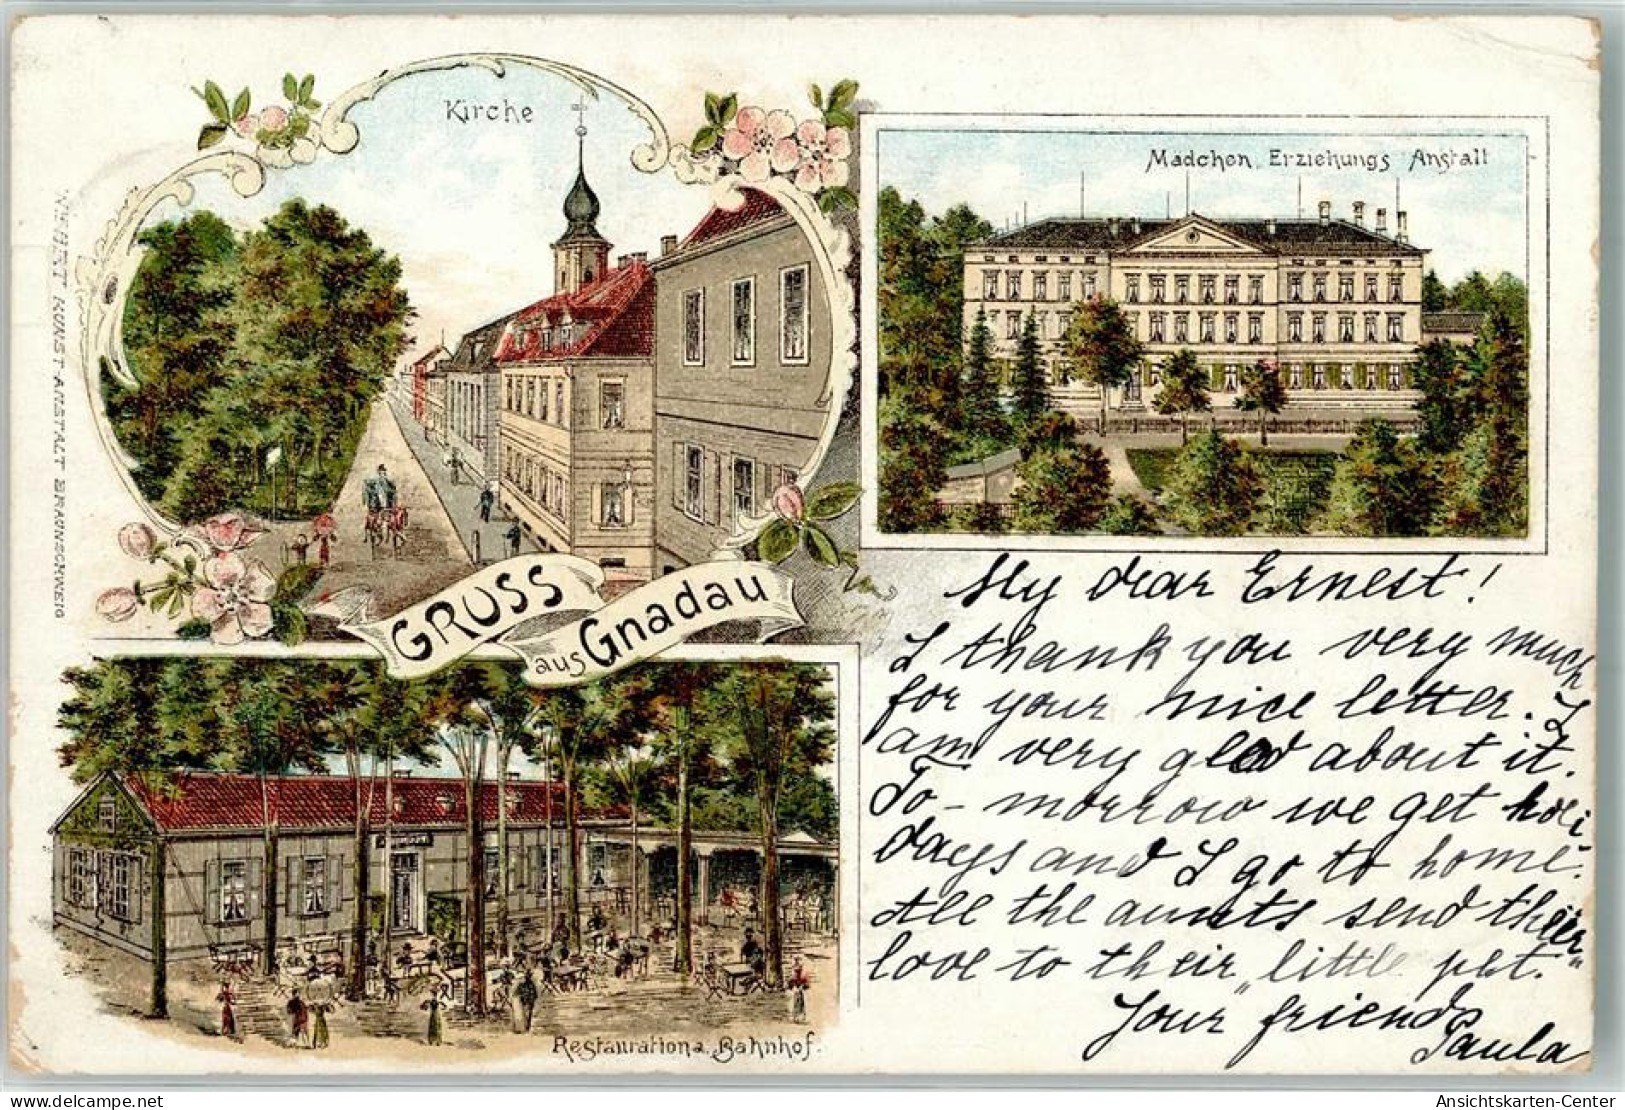 Kirche
Mädchen Erziehungs Anstalt
GRUSS
aus Gnadau
Restauration a. Bahnhof.
KUNST-ANSTALT BRAUNSCHWEIG
My dear Ernest!
I thank you very much
for your nice letter. I
am very glad about it.
To-morrow we get holi-
days and I go to home.
All the aunts send their
love to their „little pet."
Your friend
Paula
www.ansichtskartenversand.com
Ansichtskarten-Center